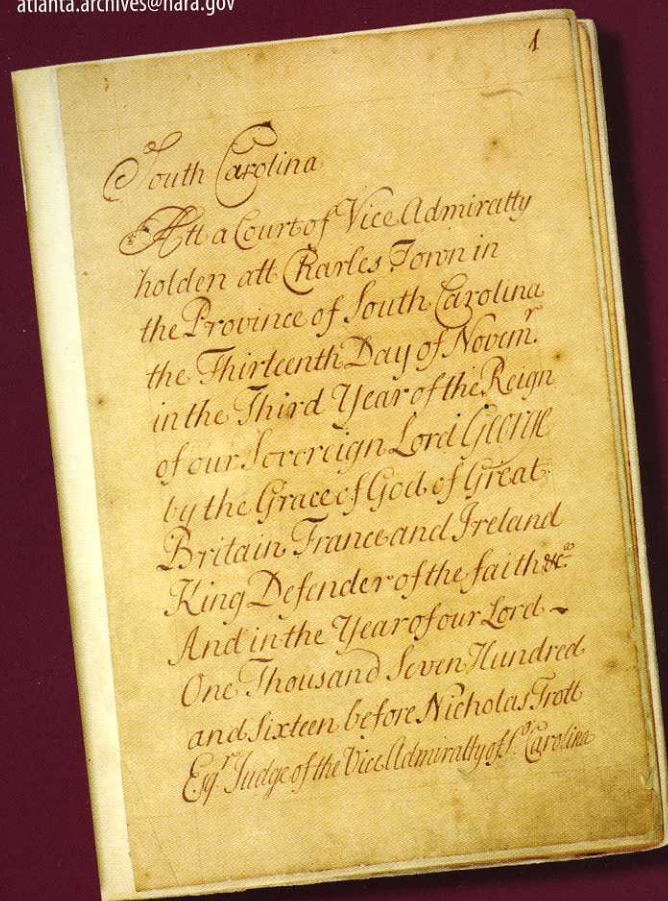 atlanta.archives@nara.gov
1
South Carolina
Att a Court of Vice Admiralty
holden att Charles Town in
the Province of South Carolina
the Thirteenth Day of Novem.r
in the Third Year of the Reign
of our Sovereign Lord GEORGE
by the Grace of God of Great
Britain France and Ireland
King Defender of the faith &c.a
And in the Year of our Lord ~
One Thousand Seven Hundred
and Sixteen before Nicholas Trott
Esq.r Judge of the Vice Admiralty of S.o Carolina